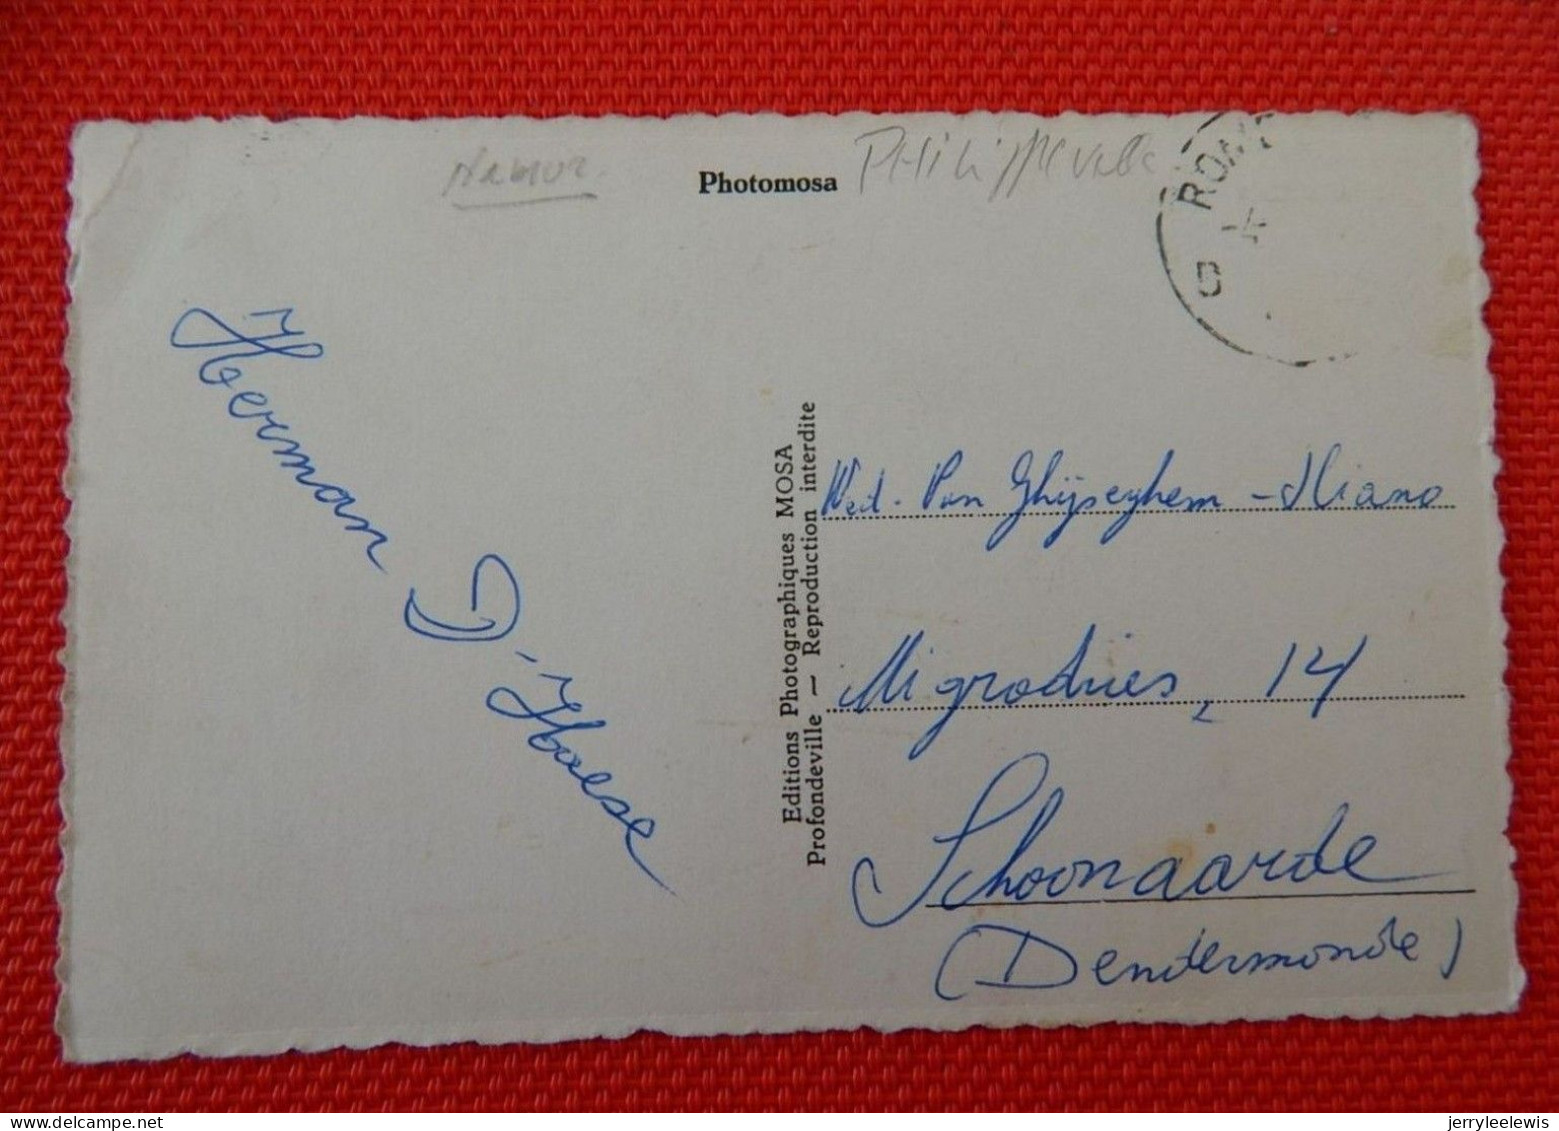 Namur
Photomosa
Philippeville
ROM
Herman D'Haese
Editions Photographiques MOSA
Profondeville — Reproduction interdite
Wed. Van Ghijseghem -
Migrodries, 14
Schoonaarde
(Dendermonde)
delcampe.net
jerryleelewis